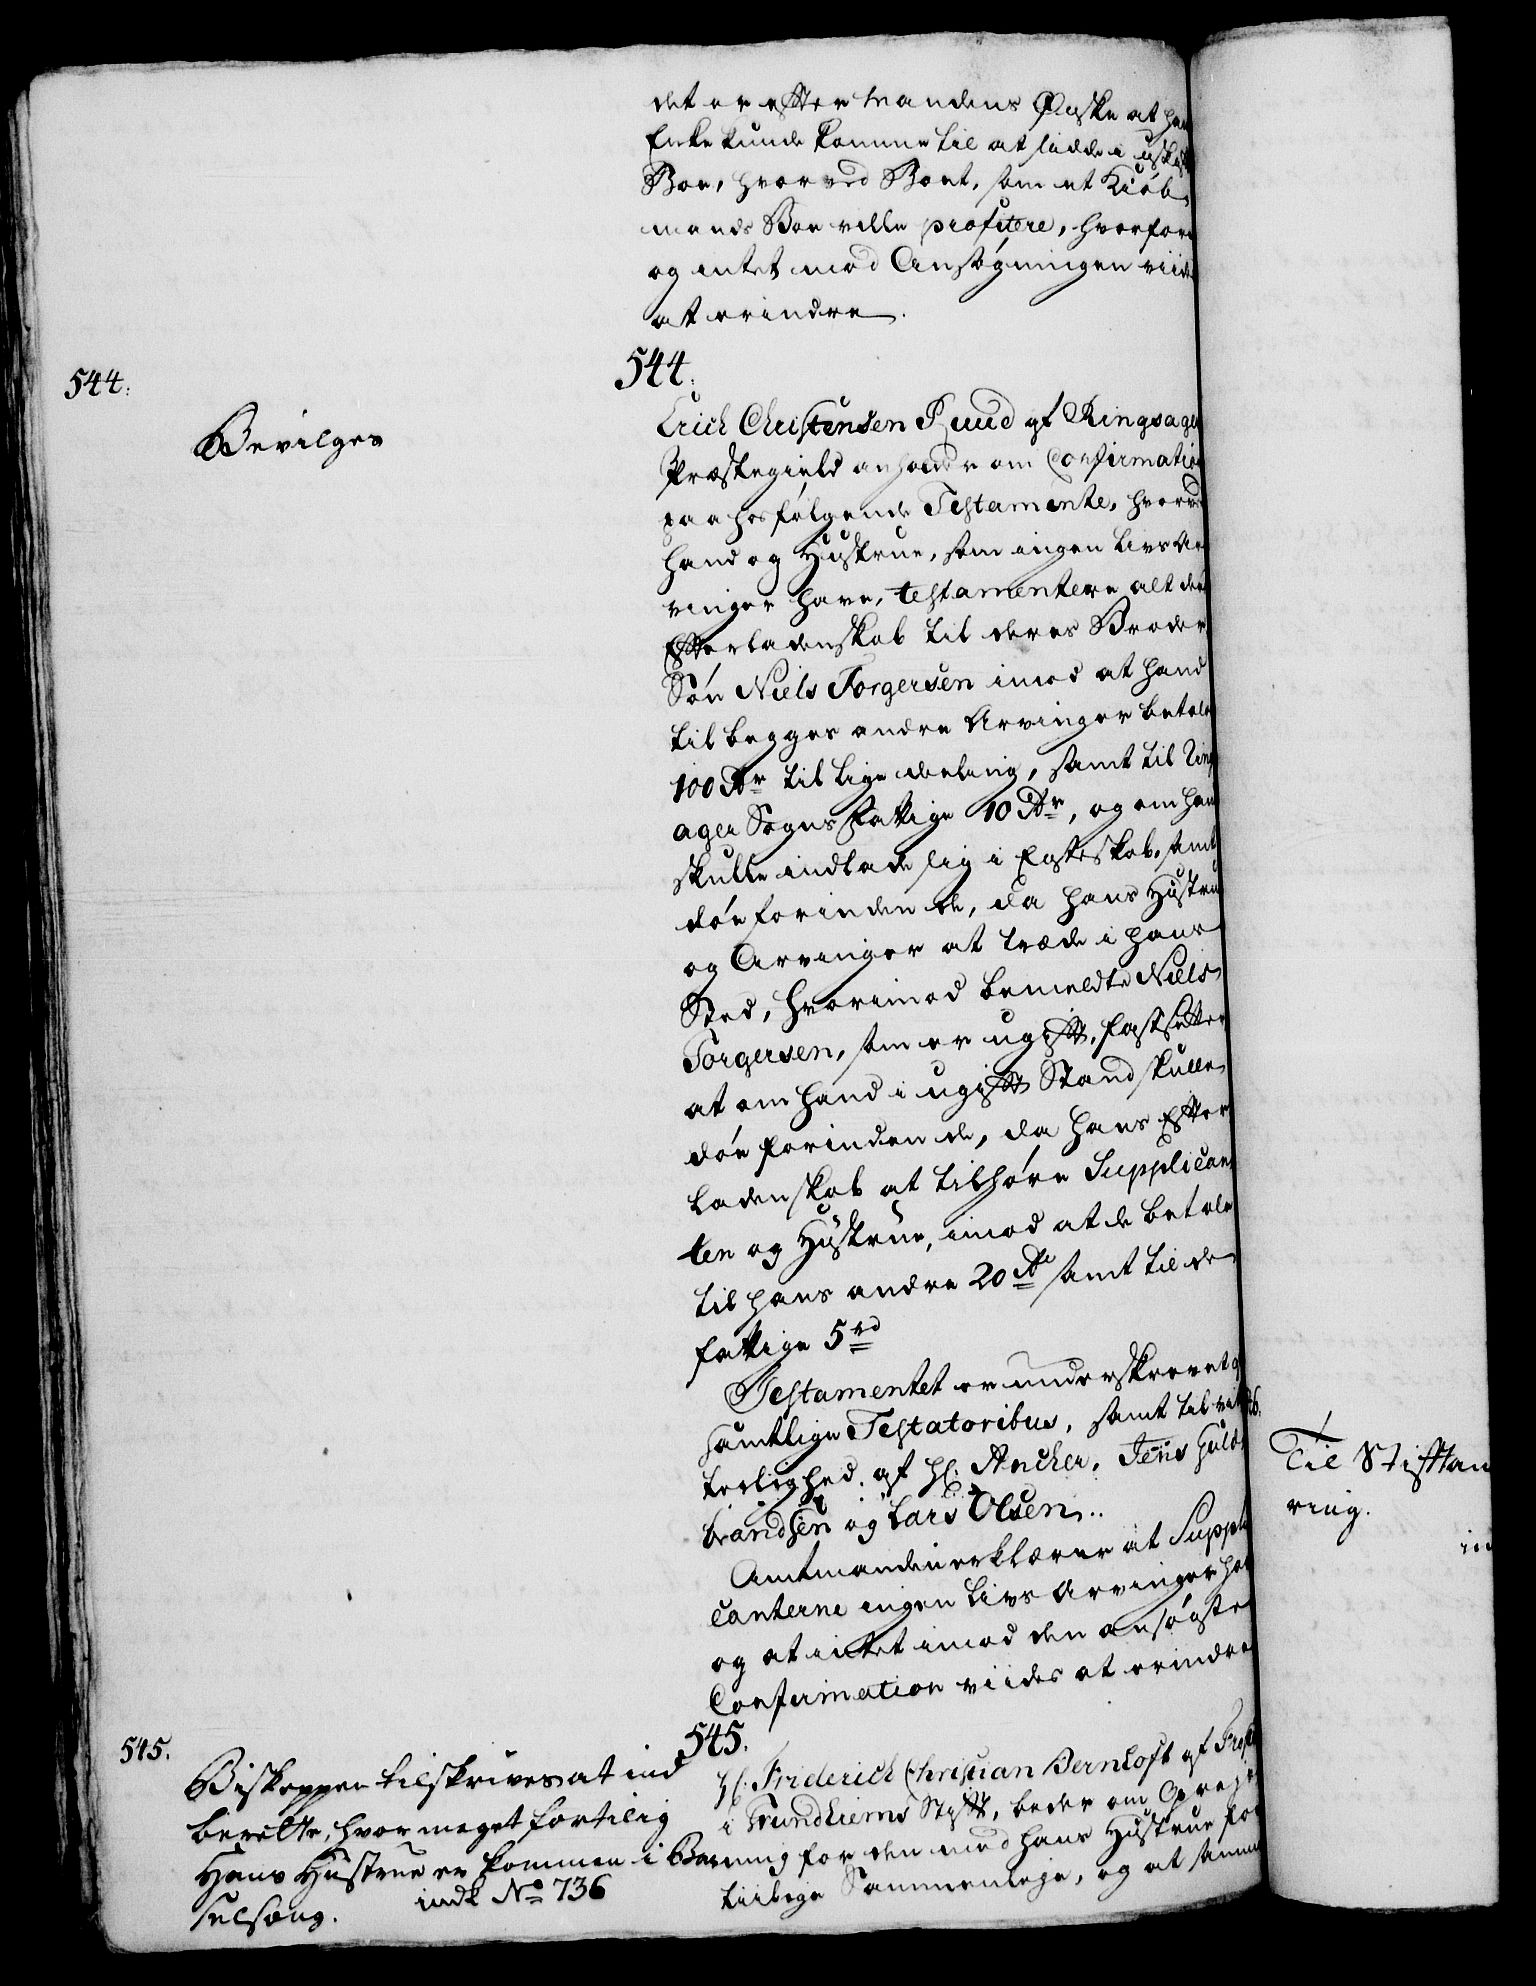 det er efter Mandens Ønske at han
Enke kunde komme til at sidde i uskift
Boe, hvor ved Boet, som et Kiöb-
mands Boe ville profitere, hvorfore
og intet mod Ansøgningen viides
at erindre.
544.
544.
Bevilges
Erich Christensen Ruud af Ringsager
Præstegield anholder om Confirmation
paa hosfølgende Testamente, hvorved
hand og Hustrue, som ingen Livs Ar
vinger have, testamentere alt deres
Efterladenskab til deres Broder
Søn Niels Torgersen imod at hand
til begges andre Arvinger betaler
100 Rdr til lige deeling, samt til Rings
ager Sogns Fattige 10 Rdr, og om hand
skulle indlade sig i Egteskab, samt
döe forinden de, da hans Hustrue
og Arvinger at træde i hans
Sted, hvorimod bemeldte Niels
Torgersen, som er ugift, fastsetter
at om hand i ugift Stand skulle
döe forinden de, da hans Efter
ladenskab at tilhøre Supplican
ten og Hustrue, imod at de betale
til hans andre 20 Rdr samt til de
fattige 5 rd
Testamentet er underskrevet af
samtlige Testatoribus, samt til vit
terlighed af Hr. Ancher, Jens Guld-
brandsen og Lars Olsen..
Amtmanden erklærer at Suppli
canterne ingen Livs Arvinger have
og at intet imod den ansøgte
Confirmation viides at erindre
545.
545.
Biskoppen tilskrives at ind
berette, hvor meget fortilig
Hans Hustrue er kommen i Bar
selseng.
indk No 736
Hr. Friderich Christian Bernhoft af
i Trundhiems Stift, beder om Oprejs
ning for den med hans Hustrue for
tiilige Sammenleje, og at samme
Til Stiftam
ring.